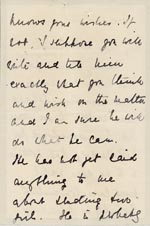 knows your wishes. If
not, I suppose you will
write and tell him
exactly what you think
and wish on the matter
and I am sure he will
do what he can.
He has not yet said
anything to me
about sending two
He is probably